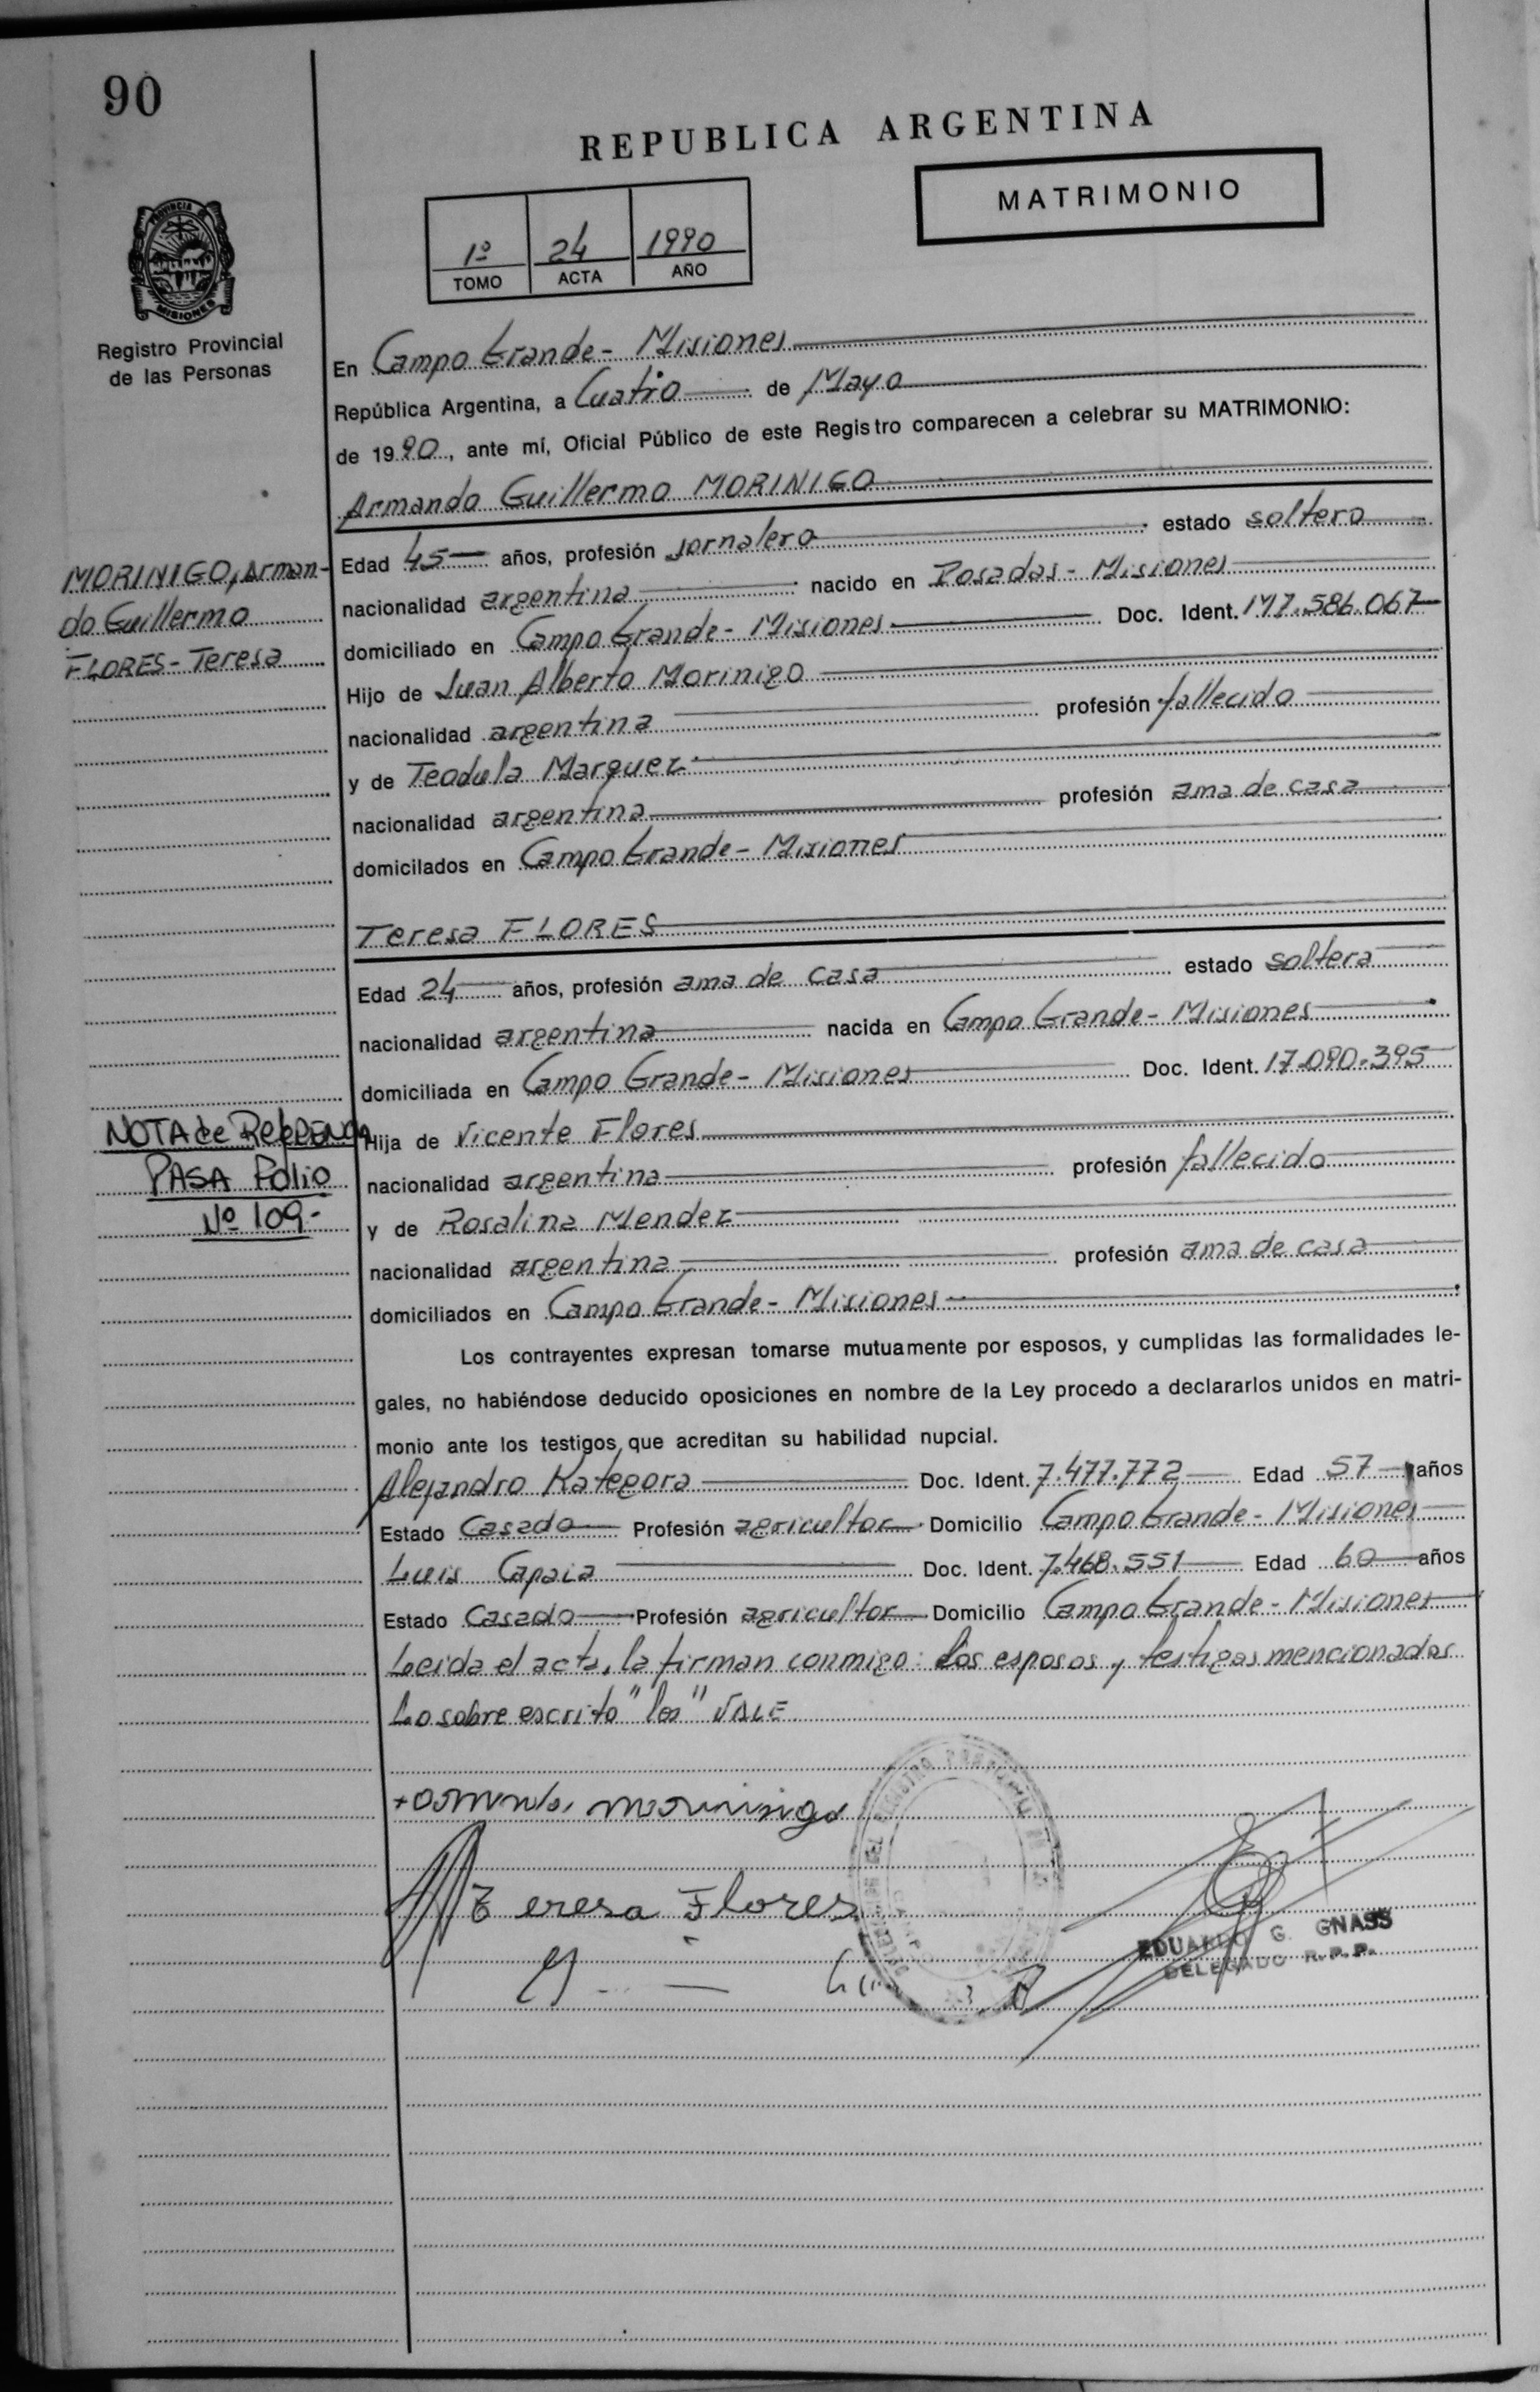 90
REPUBLICA ARGENTINA
MATRIMONIO
1º 24 1990
TOMO ACTA AÑO
PROVINCIA DE
MISIONES
Registro Provincial
de las Personas
En Campo Grande - Misiones
República Argentina, a Cuatro de Mayo
de 1990, ante mí, Oficial Público de este Registro comparecen a celebrar su MATRIMONIO:
Armando Guillermo MORINIGO
MORINIGO, Arman-
do Guillermo
FLORES - Teresa
Edad 45 años, profesión jornalero estado soltero
nacionalidad argentina nacido en Posadas - Misiones
domiciliado en Campo Grande - Misiones Doc. Ident. M7.586.067
Hijo de Juan Alberto Morinigo
nacionalidad argentina profesión fallecido
y de Teodula Marquez
nacionalidad argentina profesión ama de casa
domicilados en Campo Grande - Misiones
Teresa FLORES
Edad 24 años, profesión ama de casa estado soltera
nacionalidad argentina nacida en Campo Grande - Misiones
domiciliada en Campo Grande - Misiones Doc. Ident. 17.090.395
NOTA de RefeRENCIA
PASA Folio
Nº 109-
Hija de Vicente Flores
nacionalidad argentina profesión fallecido
y de Rosalina Mendez
nacionalidad argentina profesión ama de casa
domiciliados en Campo Grande - Misiones
Los contrayentes expresan tomarse mutuamente por esposos, y cumplidas las formalidades le-
gales, no habiéndose deducido oposiciones en nombre de la Ley procedo a declararlos unidos en matri-
monio ante los testigos que acreditan su habilidad nupcial.
Alejandro Kategora Doc. Ident. 7.477.772 Edad 57 años
Estado Casado Profesión agricultor Domicilio Campo Grande - Misiones
Luis Capaia Doc. Ident. 7.468.551 Edad 60 años
Estado Casado Profesión agricultor Domicilio Campo Grande - Misiones
Leida el acta, la firman conmigo: los esposos y testigos mencionados
Lo sobre escrito "los" VALE
Teresa Flores
EDUARDO G. GNASS
DELEGADO R.P.P.